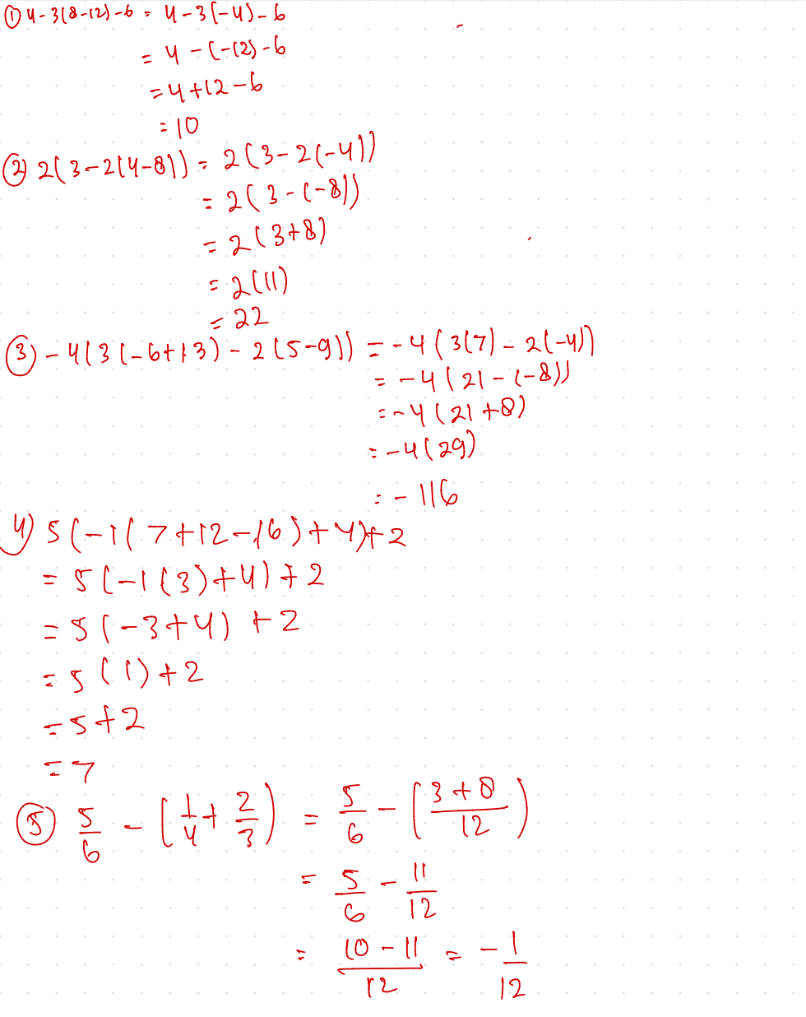 ① 4-3(8-12)-6 = 4-3(-4)-6
= 4-(-12)-6
=4+12-6
=10
② 2(3-2(4-8)) = 2(3-2(-4))
= 2(3-(-8))
= 2(3+8)
= 2(11)
= 22
③ -4(3(-6+13)-2(5-9)) = -4(3(7)-2(-4))
= -4(21-(-8))
= -4(21+8)
= -4(29)
= -116
4) 5(-1(7+12-16)+4)+2
= 5(-1(3)+4)+2
= 5(-3+4)+2
= 5(1)+2
=5+2
=7
⑤ 5/6 - (1/4 + 2/3) = 5/6 - (3+8/12)
= 5/6 - 11/12
= 10-11/12 = -1/12